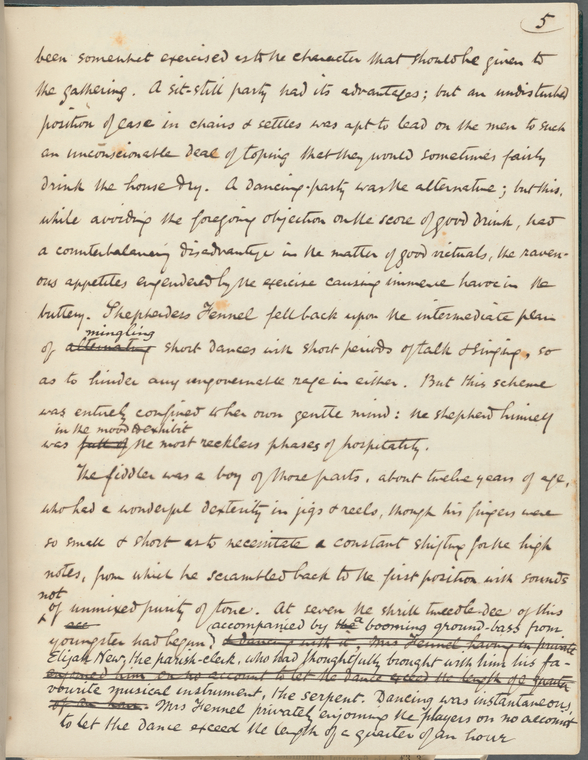 5
been somewhat exercised as to the character that should be given to
the gathering. A sit-still party had its advantages; but an undisturbed
position of ease in chairs & settles was apt to lead on the men to such
an unconscionable deal of toping that they would sometimes fairly
drink the house dry. A dancing-party was the alternative; but this,
while avoiding the foregoing objection on the score of good drink, had
a counterbalancing disadvantage in the matter of good victuals, the raven-
ous appetites engendered by the exercise causing immense havoc in the
buttery. Shepherdess Fennel fell back upon the intermediate plan
mingling
of alternating short dances with short periods of talk & singing, so
as to hinder any ungovernable rage in either. But this scheme
was entirely confined to her own gentle mind: the shepherd himself
in the mood to exhibit
was full of the most reckless phases of hospitality.
The fiddler was a boy of those parts, about twelve years of age,
who had a wonderful dexterity in jigs & reels, though his fingers were
so small & short as to necessitate a constant shifting for the high
notes, from which he scrambled back to the first position with sounds
not
of unmixed purity of tone. At seven the shrill tweedle-dee of this
accompanied by the a booming ground-bass from
youngster had begun, & dancing with it. Mrs Fennel having in private
Elijah New, the parish-clerk, who had thoughtfully brought with him his fa-
enjoined him on no account to let the dance exceed the length of a quarter
vourite musical instrument, the serpent. Dancing was instantaneous,
of an hour. Mrs Fennel privately enjoining the players on no account
to let the dance exceed the length of a quarter of an hour